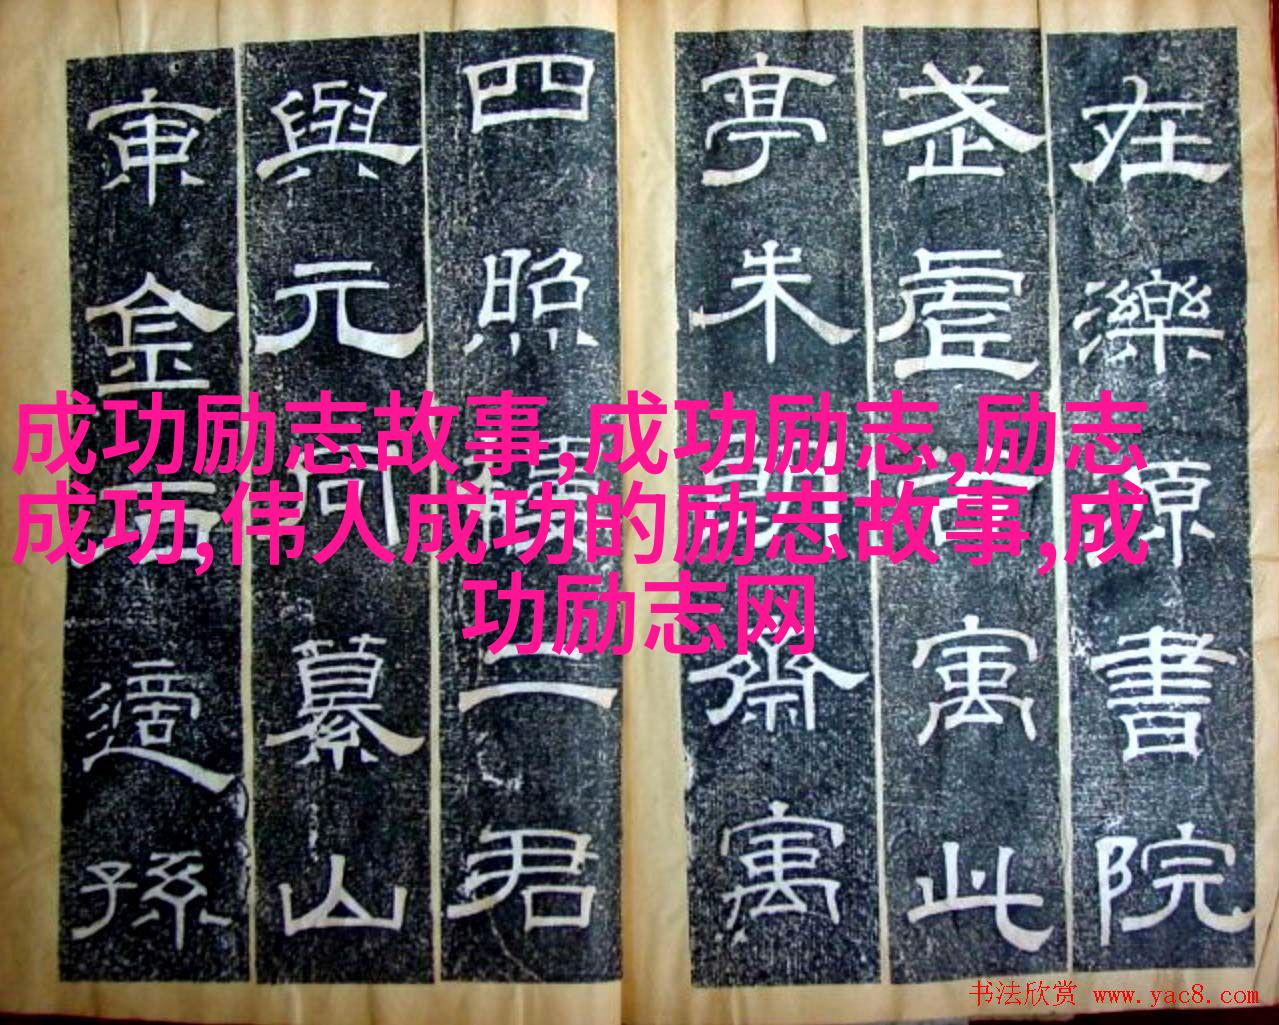 在濼源書院
武虛寓此
亭朱朗齋寓
四照二君
與元同纂山
東金石適孫
成功励志故事,成功励志,励志
成功,伟人成功的励志故事,成
功励志网
书法欣赏 www.yac8.com